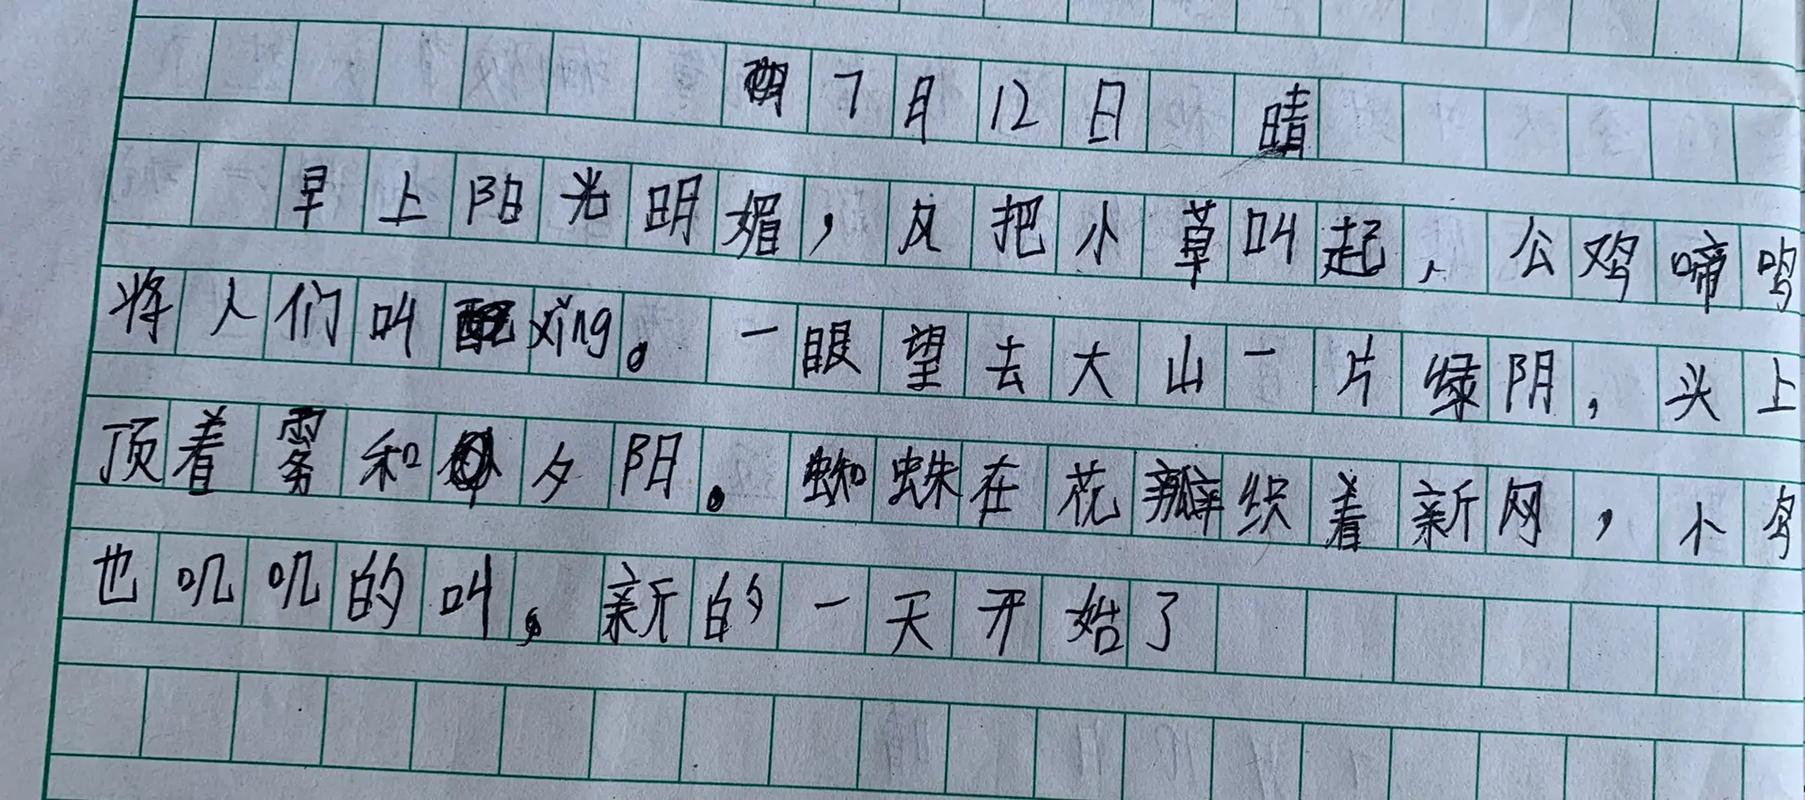 7月12日 晴
早上阳光明媚，风把小草叫起，公鸡啼鸣
将人们叫xǐng。一眼望去大山一片绿阴，头上
顶着雾和夕阳。蜘蛛在花瓣织着新网，小鸟
也叽叽的叫，新的一天开始了